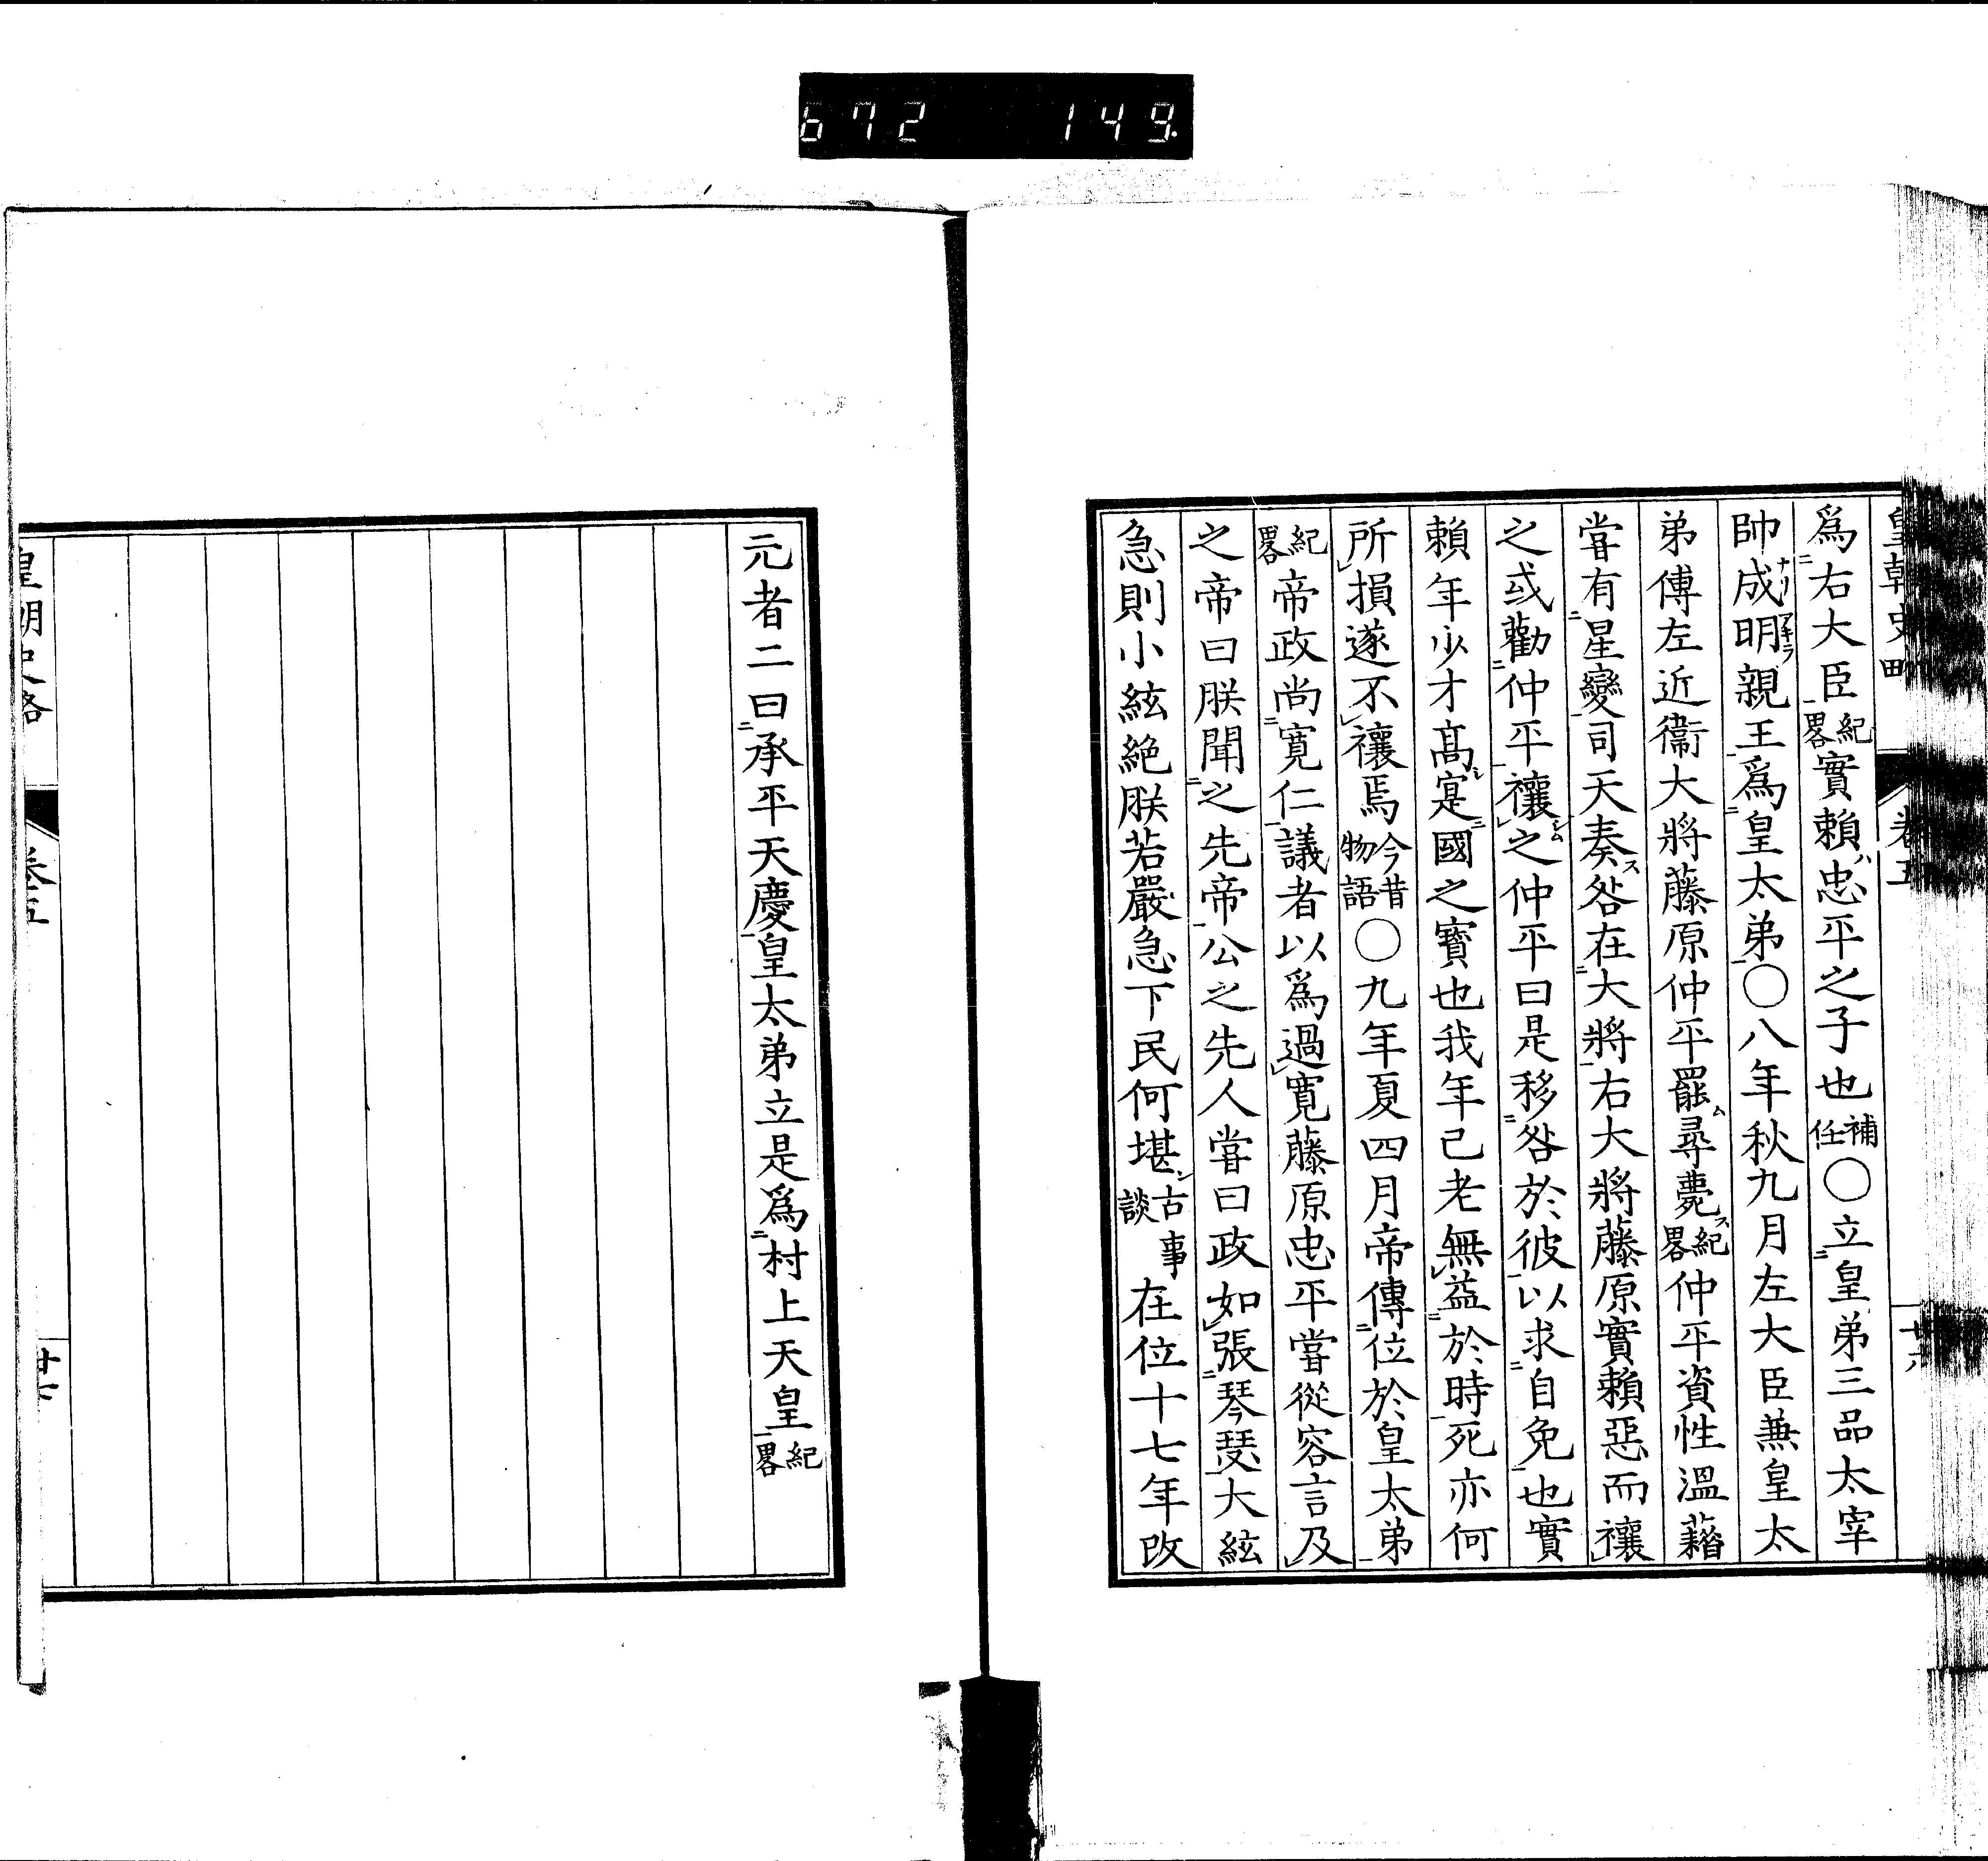 672 149
皇朝史略 卷五 廿六
爲右大臣紀畧實賴忠平之子也補任〇立皇弟三品太宰
帥成明親王爲皇太弟〇八年秋九月左大臣兼皇太
弟傅左近衞大將藤原仲平罷尋薨紀畧仲平資性溫藉
嘗有星變司天奏咎在大將右大將藤原實賴惡而禳
之或勸仲平禳之仲平曰是移咎於彼以求自免也實
賴年少才髙寔國之寶也我年已老無益於時死亦何
所損遂不禳焉今昔物語〇九年夏四月帝傳位於皇太弟
紀畧帝政尚寬仁議者以爲過寬藤原忠平嘗從容言及
之帝曰朕聞之先帝公之先人嘗曰政如張琴瑟大絃
急則小絃絕朕若嚴急下民何堪古事談在位十七年改
元者二曰承平天慶皇太弟立是爲村上天皇紀畧
皇朝史略 卷五 廿七